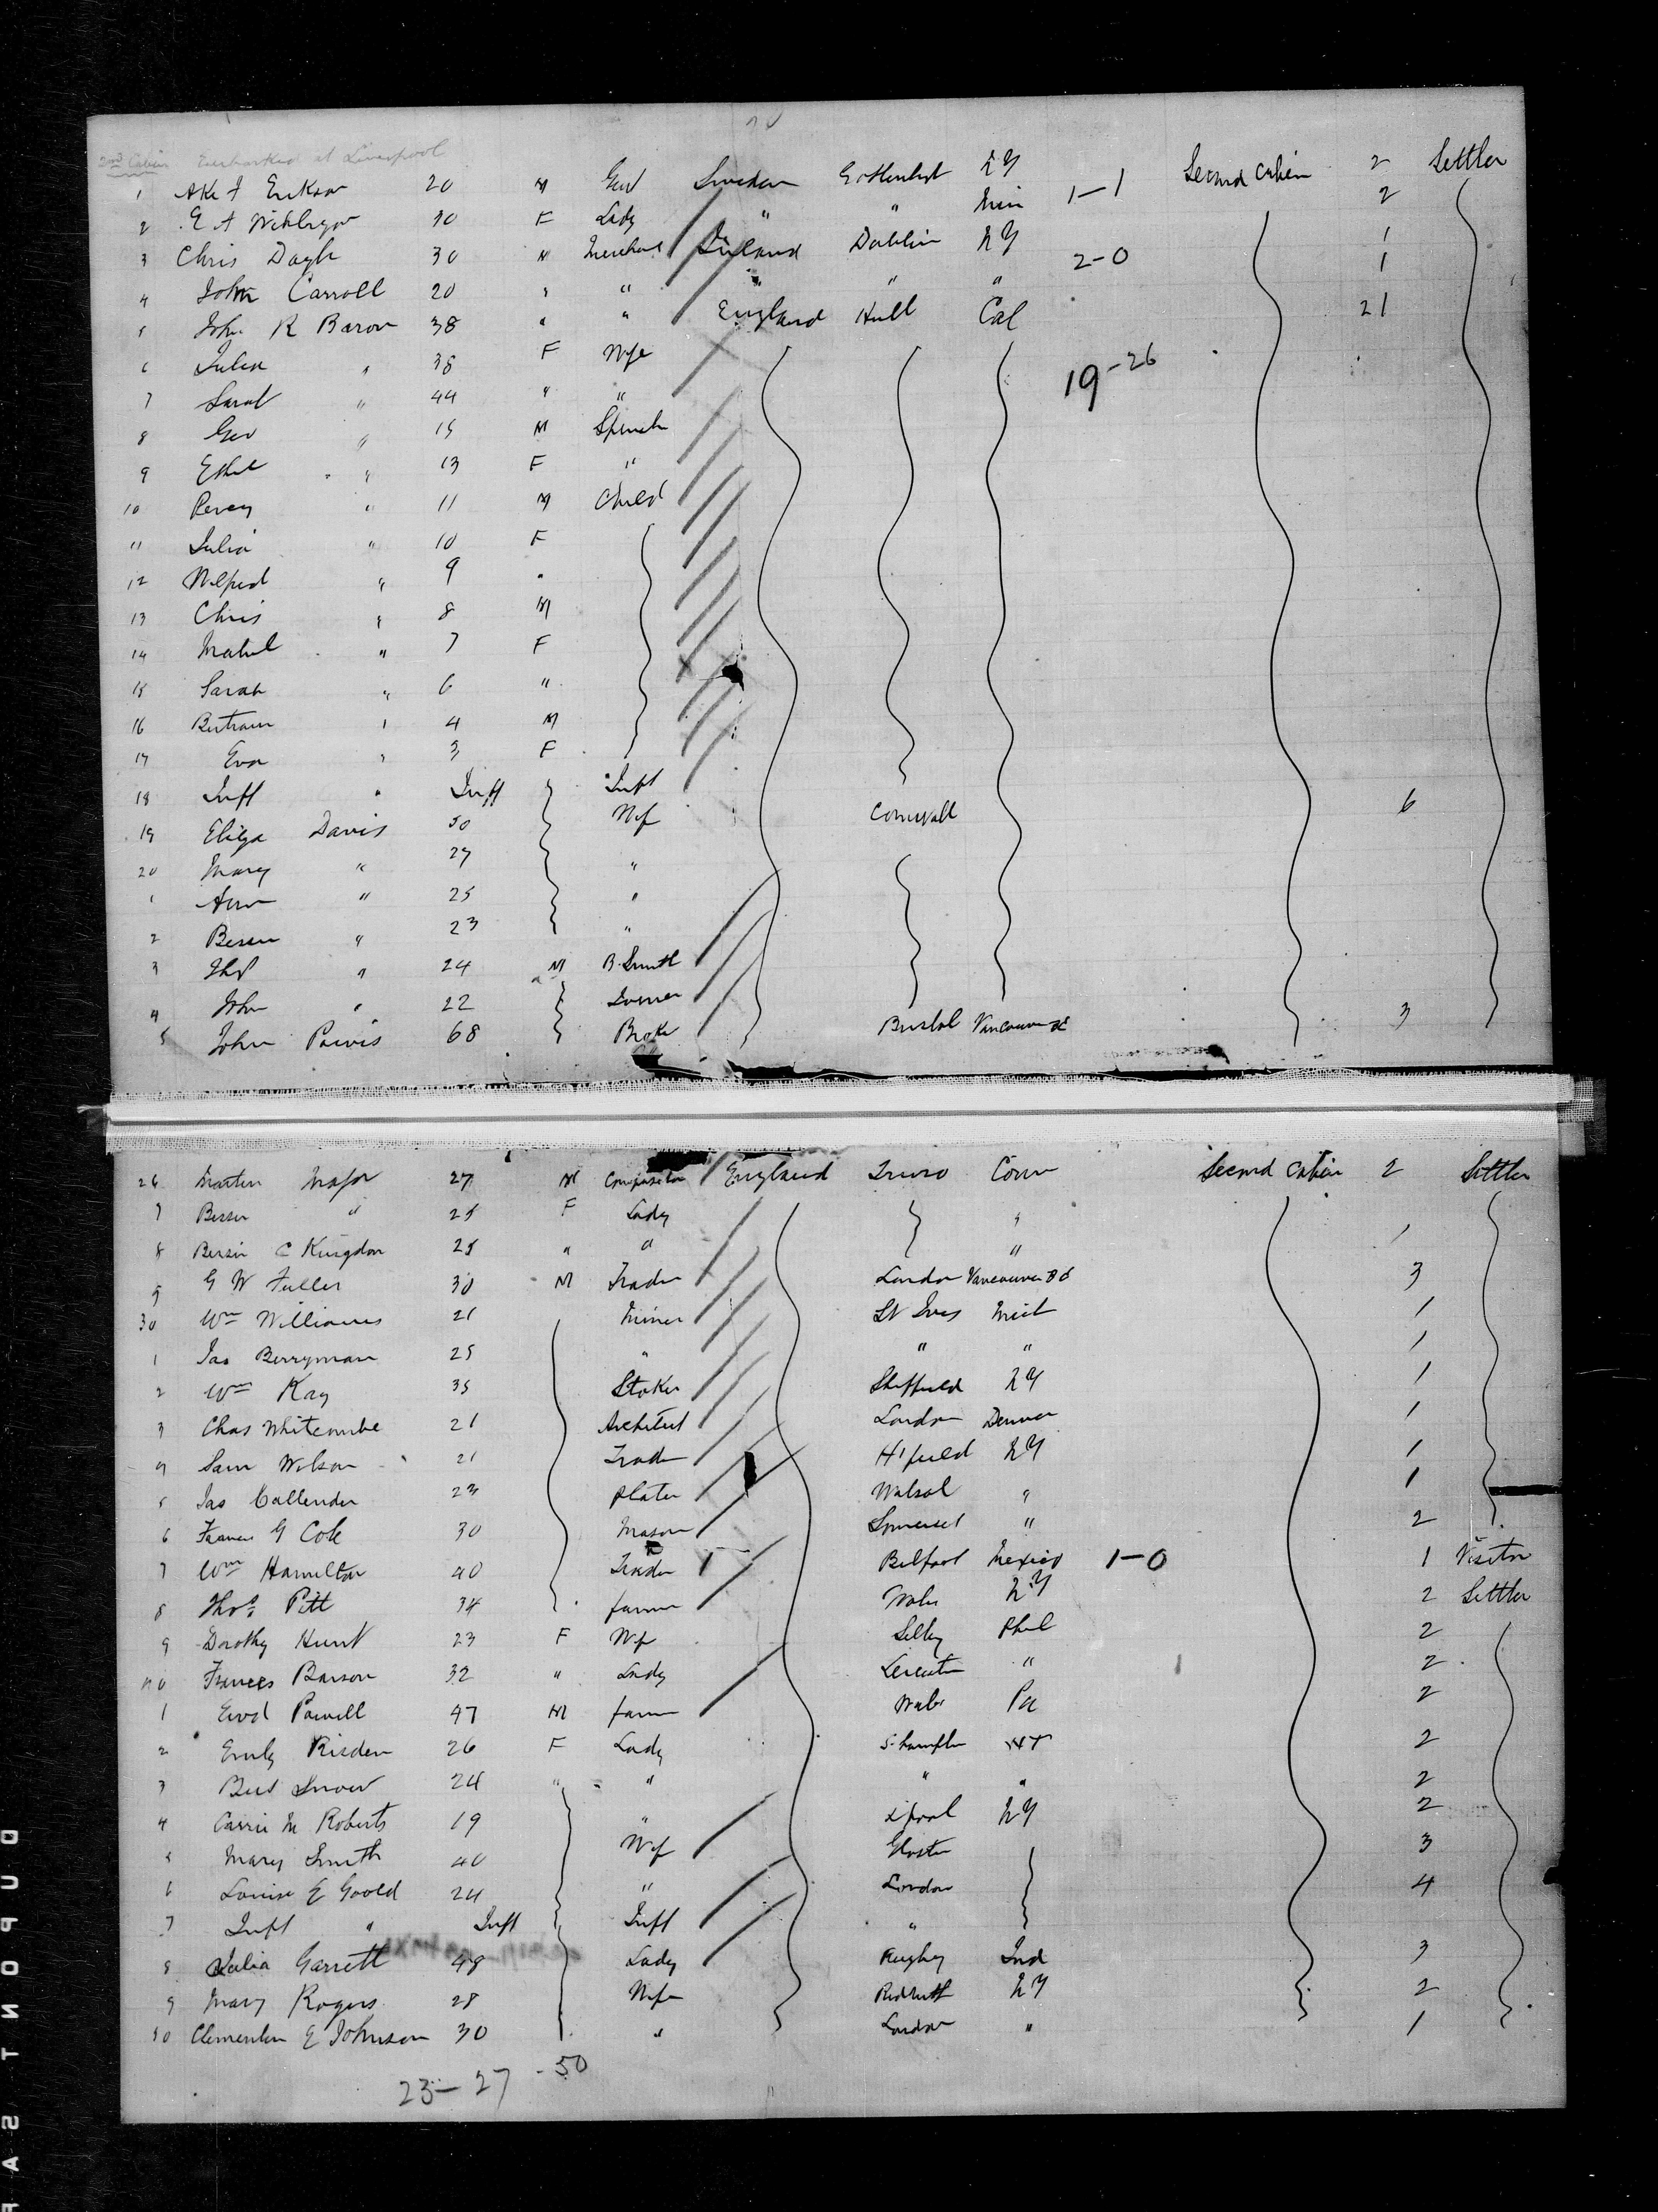 2nd Cabin Embarked at Liverpool
1 Ake F Erikson 20 M Gent Sweden Gottenbg NY 1-1 Second Cabin 2 Settler
2 E A 30 F Lady " " Min 2
3 Chris Doyle 30 M Merchant Ireland Dublin NY 2-0 1
4 John Carroll 20 " " " " " 1
5 John R Baron 38 " " England Hull Cal 21
6 Julia " 38 F Wife 19-26
7 Sarah " 44 " "
8 Geo " 15 M Spinster
9 Ethel " 13 F "
10 Percy " 11 M Child
11 Julia " 10 F
12 Wilfred " 9 "
13 Chris " 8 M
14 Mabel " 7 F
15 Sarah " 6 "
16 Bertram " 4 M
17 Eva " 3 F
18 Inft " Inft Inft
19 Eliza Davis 50 Wif Cornwall 6
20 Mary " 27 "
1 Ann " 25 "
2 Bessie " 23 "
3 Thos " 24 M B. Smith
4 John " 22
5 John Purvis 68 Broker Bristol Vancouver BC 3
26 Martin Major 27 M Compositor England Truro Conn Second Cabin 2 Settler
7 Bessie " 25 F Lady "
8 Bessie C Kingdon 25 " " " 1
9 G W Fuller 30 M Trader London Vancouver BC 3
30 Wm Williams 21 Miner St Ives Mich 1
1 Jas Berryman 25 " " " 1
2 Wm Kay 35 Stoker Sheffield NY 1
3 Chas Whitcombe 21 Architect London Denver 1
4 Sam Wilson 21 Trader H'field NY 1
5 Jas Callender 23 Plater Walsal " 1
6 Frances G Cole 30 Mason Somerset " 2
7 Wm Hamilton 40 Trader Belfast Mexico 1-0 1 Visitor
8 Thos Pitt 34 farmer Wales NY 2 Settler
9 Dorothy Hunt 23 F Wif Selby Phil 2
40 Frances Barson 32 " Lady Leicester " 2
1 Evod Powell 47 M farm Wales Pa 2
2 Emily Risden 26 F Lady S-hampton 2
3 Snow 24 " " " " 2
4 Carrie M Roberts 19 " L'pool NY 2
5 Mary Smith 40 Wif Gloster 3
6 Louise E Goold 24 " London 4
7 Inft " Inft Inft "
8 Julia Garrett 48 Lady Rugby Ind 3
9 Mary Rogers 28 Wife Redruth NY 2
50 Clementin E Johnson 30 " London " 1
23-27-50